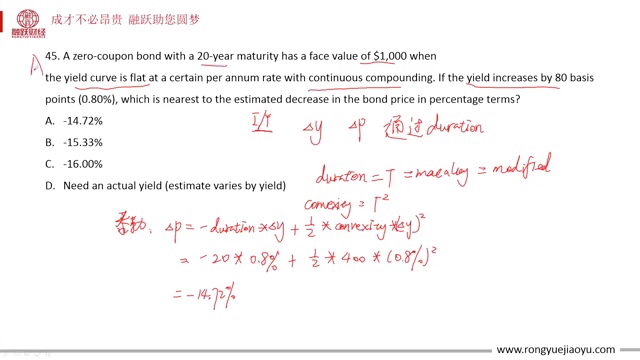 融跃财经
成才不必昂贵 融跃助您圆梦
A
45. A zero-coupon bond with a 20-year maturity has a face value of $1,000 when
the yield curve is flat at a certain per annum rate with continuous compounding. If the yield increases by 80 basis
points (0.80%), which is nearest to the estimated decrease in the bond price in percentage terms?
A. -14.72%
B. -15.33%
C. -16.00%
D. Need an actual yield (estimate varies by yield)
I/Y Δy ΔP 通过 duration
duration = T = macaley = modified
convexity = T²
泰勒: ΔP = -duration * Δy + 1/2 * convexity * (Δy)²
= -20 * 0.8% + 1/2 * 400 * (0.8%)²
= -14.72%
www.rongyuejiaoyu.com